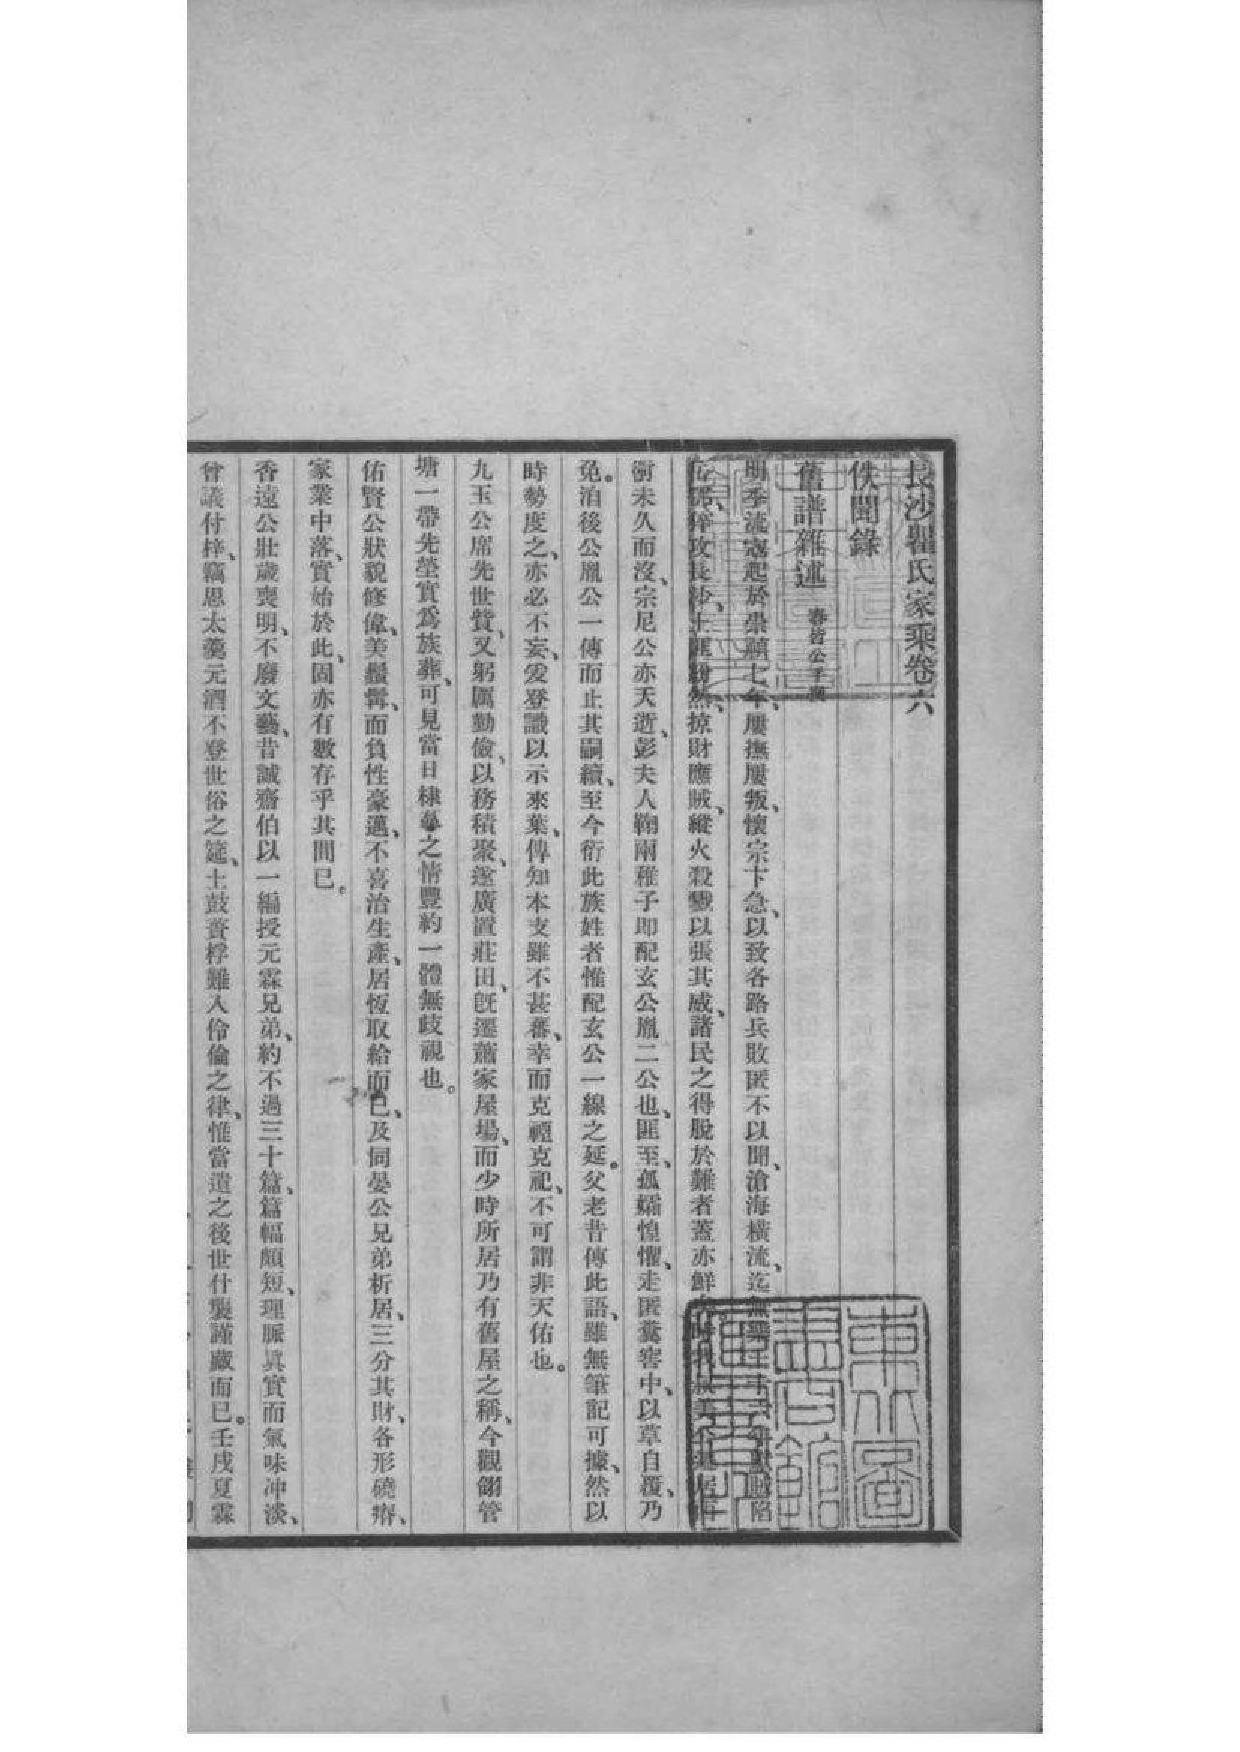 長沙瞿氏家乘卷六
佚聞錄
舊譜雜述 春皆公手
明季流寇起於崇禎七年、屢撫屢叛、懷宗卞急、以致各路兵敗匿不以聞、滄海橫流、迄無 陷
攻長沙、土匪紛然、掠財應賊、縱火殺戮以張其威、諸民之得脫於難者蓋亦鮮
衡未久而沒、宗尼公亦夭逝、彭夫人鞠兩稚子即配玄公胤二公也、匪至、孤孀惶懼、走匿糞窖中、以草自覆、乃
免。洎後公胤公一傳而止其嗣續、至今衍此族姓者惟配玄公一線之延。父老昔傳此語、雖無筆記可據、然以
時勢度之、亦必不妄、爰登識以示來葉、傳知本支雖不甚蕃、幸而克禋克祀、不可謂非天佑也。
九玉公席先世貲、又躬厲勤儉、以務積聚、遂廣置莊田、旣遷蕭家屋場、而少時所居乃有舊屋之稱、今觀翎管
塘一帶先塋實爲族葬、可見當日棣萼之情豐約一體無歧視也。
佑賢公狀貌修偉、美鬚髯、而負性豪邁、不喜治生產、居恆取給而已、及同晏公兄弟析居、三分其財、各形磽瘠、
家業中落、實始於此、固亦有數存乎其間已。
香遠公壯歲喪明、不廢文藝、昔誠齋伯以一編授元霖兄弟、約不過三十篇、篇幅頗短、理脈眞實而氣味冲淡、
曾議付梓、竊思太羹元酒不登世俗之筵、土鼓蕢桴難入伶倫之律、惟當遺之後世什襲謹藏而已。壬戌夏霖